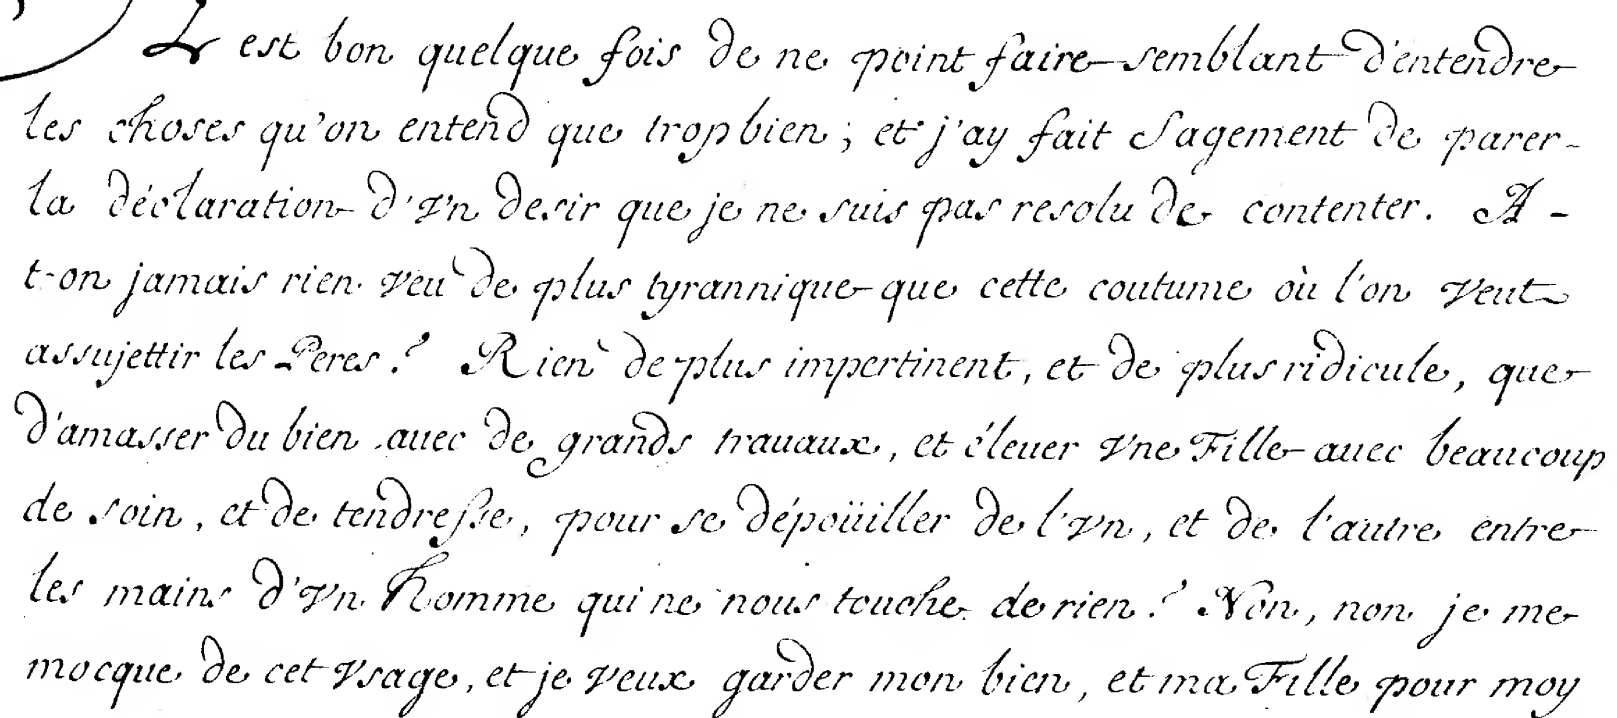 Il est bon quelque fois de ne point faire semblant d'entendre
les choses qu'on entend que trop bien ; et j'ay fait Sagement de parer
la déclaration d'vn desir que je ne suis pas resolu de contenter. A-
t-on jamais rien veu de plus tyrannique que cette coutume où l'on veut
assujettir les Peres ? Rien de plus impertinent, et de plus ridicule, que
d'amasser du bien auec de grands trauaux, et éleuer vne Fille auec beaucoup
de soin, et de tendresse, pour se dépoüiller de l'vn, et de l'autre entre
les mains d'vn homme qui ne nous touche de rien ? Non, non je me
mocque de cet vsage, et je veux garder mon bien, et ma Fille pour moy